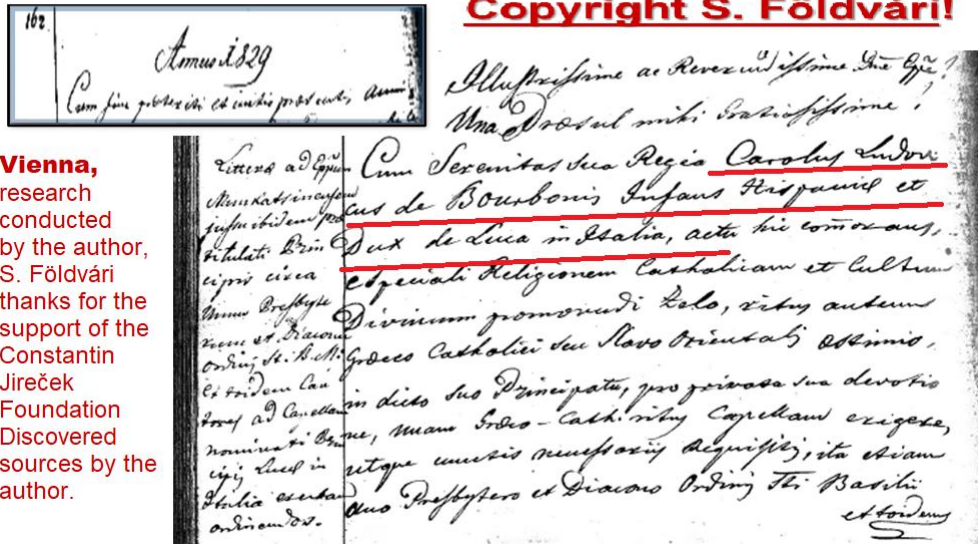 Copyright S. Földvári!
162
Annus 1829
Cum fine praeteriti et initio praesentis anni
Vienna,
research
conducted
by the author,
S. Földvári
thanks for the
support of the
Constantin
Jireček
Foundation
Discovered
sources by the
author.
Litterae ad Eppum
Munkatsiensem
jussu ibidem
titulati Prin
cipis circa
Unum Presbyte
rum et Diaconum
ordinis St. B. M.
et totidem Can
tores ad Capellam
nominati Prin
cipis Lucae in
Italia
ordinandos.
Illustrissime ac Reverendissime Dne Eppe!
Una Praesul mihi Gratiosissime!
Cum Serenitas sua Regia Carolus Ludovi
cus de Bourbonis Infans Hispaniae et
Dux de Luca in Italia, actu hic comorans,
e speciali Religionem Catholicam et Cultum
Divinum promovendi Zelo, ritus autem
Graeco Catholici seu Slavo Orientalis
in dicto suo Principatu, pro privata sua devotio
ne, unam Graeco-Cath. ritus Capellam erigere,
utque cunctis necessariis Requisitis, ita etiam
duo Presbytero et Diacono Ordinis Sti Basilii
et totidem